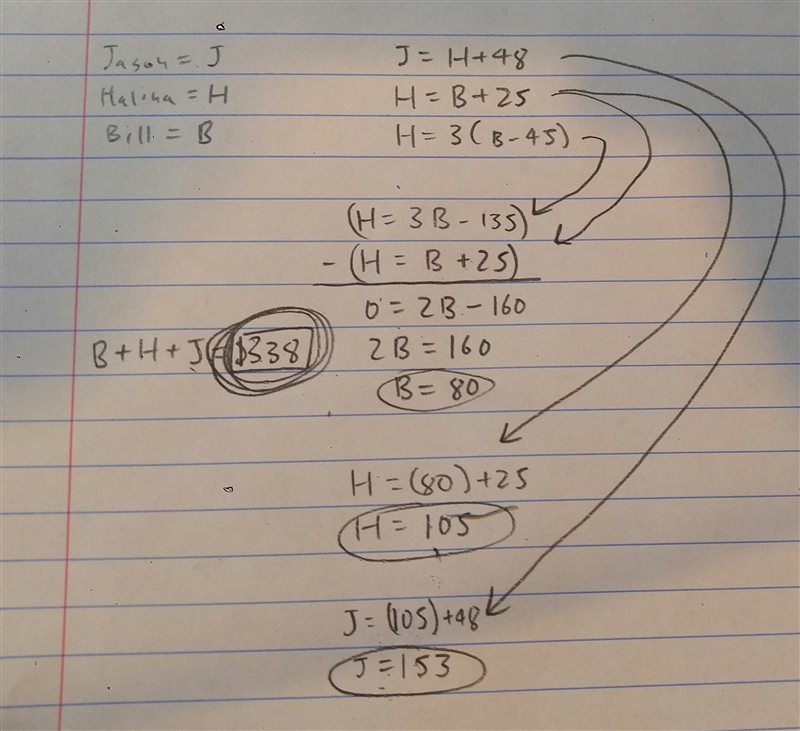 Jason = J
Halina = H
Bill = B
J = H + 48
H = B + 25
H = 3(B - 45)
(H = 3B - 135)
- (H = B + 25)
0 = 2B - 160
2B = 160
B = 80
B + H + J = $338
H = (80) + 25
H = 105
J = (105) + 48
J = 153